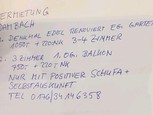 VERMIETUNG
DAMBACH
1. DENKMAL EDEL RENOVIERT EG. GARTEN
+ 200NK 3-4 ZIMMER
2. 3 ZIMMER 1. OG. BALKON
+ 220 NK
NUR MIT POSITIVER SCHUFA +
SELBSTAUSKUNFT
TEL 0176/34146358